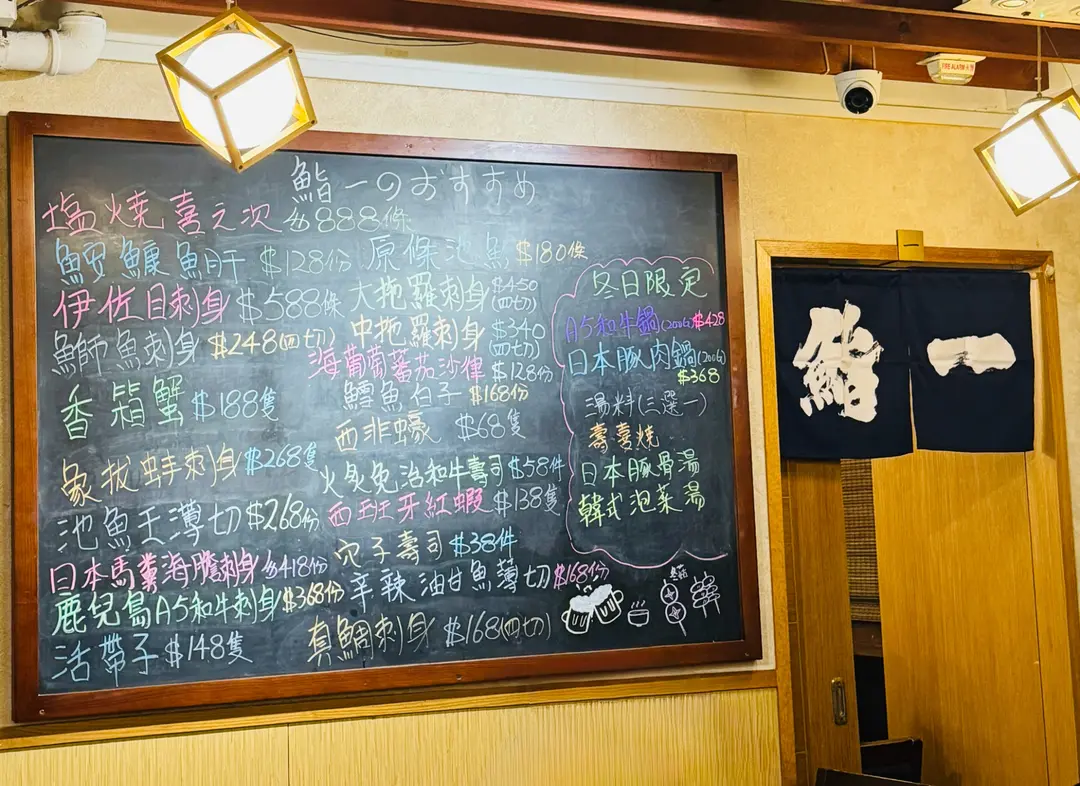 鮨一のおすすめ
塩燒喜之次 $888條
鮟鱇魚肝 $128份
原條池魚 $180條
伊佐目刺身 $588條
大拖羅刺身 $450(四切)
鰤魚刺身 $248(四切)
中拖羅刺身 $340(四切)
海葡萄蕃茄沙律 $128份
香箱蟹 $188隻
鱈魚白子 $168份
西非蠔 $68隻
象拔蚌刺身 $268隻
火炙免治和牛壽司 $58件
池魚王薄切 $268份
西班牙紅蝦 $138隻
穴子壽司 $38件
日本馬糞海膽刺身 $418份
辛辣油甘魚薄切 $168份
鹿兒島A5和牛刺身 $368份
活帶子 $148隻
真鯛刺身 $168(四切)
冬日限定
A5和牛鍋(200G) $428
日本豚肉鍋(200G)
$368
湯料(三選一)
壽喜燒
日本豚骨湯
韓式泡菜湯
鮨一
FIRE ALARM